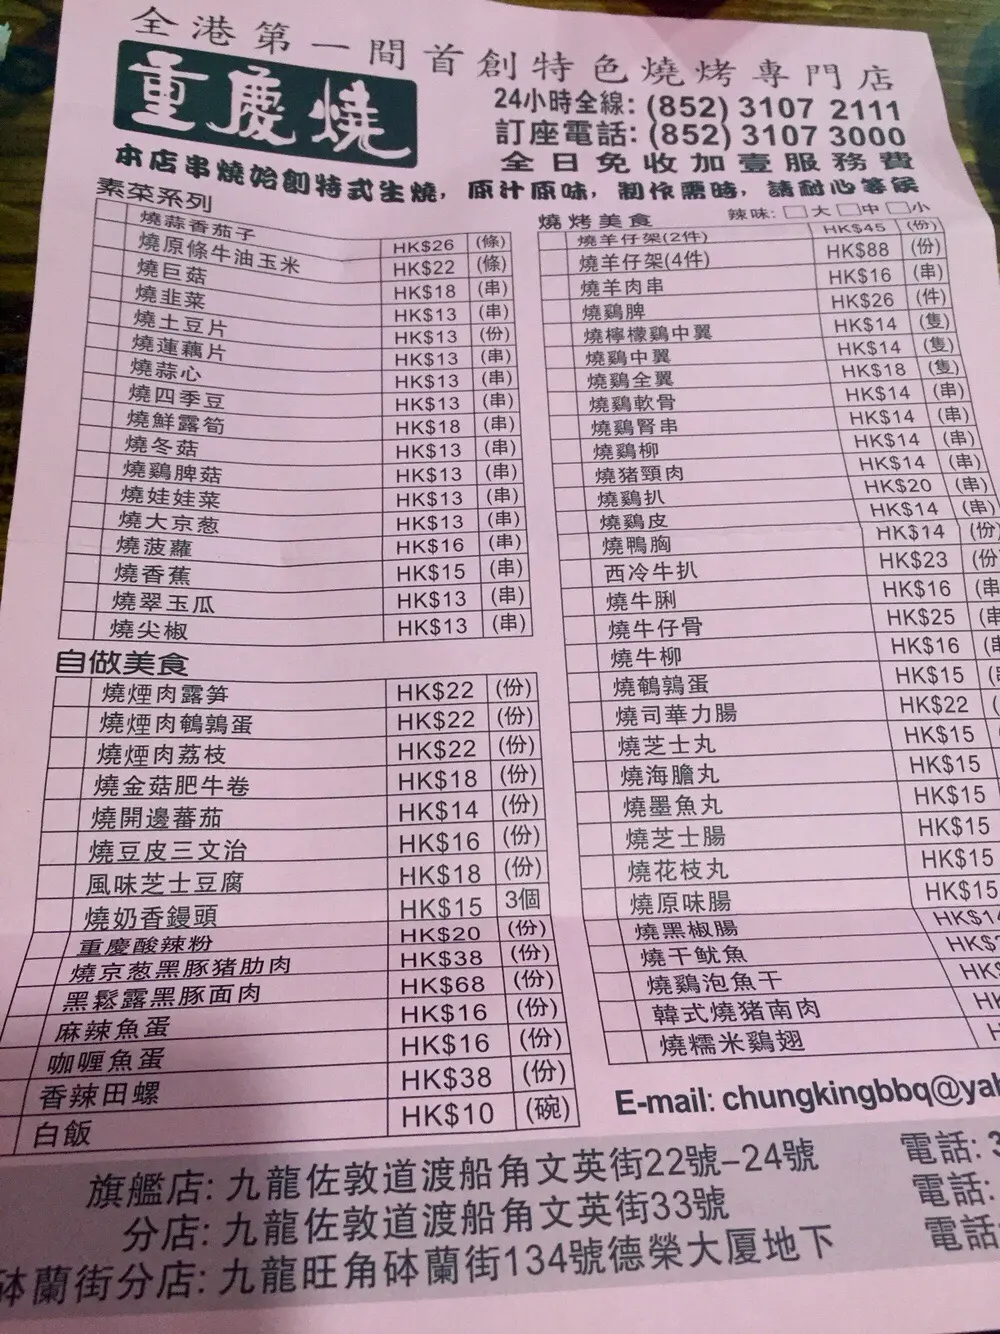 全港第一間首創特色燒烤專門店
重慶燒
24小時全線: (852) 3107 2111
訂座電話: (852) 3107 3000
全日免收加壹服務費
本店串燒始創特式生燒，原汁原味，制作需時，請耐心等候
素菜系列
燒蒜香茄子 HK$26 (條)
燒原條牛油玉米 HK$22 (條)
燒巨菇 HK$18 (串)
燒韭菜 HK$13 (串)
燒土豆片 HK$13 (份)
燒蓮藕片 HK$13 (串)
燒蒜心 HK$13 (串)
燒四季豆 HK$13 (串)
燒鮮露筍 HK$18 (串)
燒冬菇 HK$13 (串)
燒鷄脾菇 HK$13 (串)
燒娃娃菜 HK$13 (串)
燒大京葱 HK$13 (串)
燒菠蘿 HK$16 (串)
燒香蕉 HK$15 (串)
燒翠玉瓜 HK$13 (串)
燒尖椒 HK$13 (串)
自做美食
燒煙肉露笋 HK$22 (份)
燒煙肉鵪鶉蛋 HK$22 (份)
燒煙肉荔枝 HK$22 (份)
燒金菇肥牛卷 HK$18 (份)
燒開邊蕃茄 HK$14 (份)
燒豆皮三文治 HK$16 (份)
風味芝士豆腐 HK$18 (份)
燒奶香饅頭 HK$15 3個
重慶酸辣粉 HK$20 (份)
燒京葱黑豚猪肋肉 HK$38 (份)
黑鬆露黑豚面肉 HK$68 (份)
麻辣魚蛋 HK$16 (份)
咖喱魚蛋 HK$16 (份)
香辣田螺 HK$38 (份)
白飯 HK$10 (碗)
燒烤美食 辣味: □大 □中 □小
燒羊仔架(2件) HK$45 (份)
燒羊仔架(4件) HK$88 (份)
燒羊肉串 HK$16 (串)
燒鷄脾 HK$26 (件)
燒檸檬鷄中翼 HK$14 (隻)
燒鷄中翼 HK$14 (隻)
燒鷄全翼 HK$18 (隻)
燒鷄軟骨 HK$14 (串)
燒鷄腎串 HK$14 (串)
燒鷄柳 HK$14 (串)
燒猪頸肉 HK$14 (串)
燒鷄扒 HK$20 (串)
燒鷄皮 HK$14 (串)
燒鴨胸 HK$14 (份)
西冷牛扒 HK$23 (份
燒牛脷 HK$16 (串
燒牛仔骨 HK$25 (串
燒牛柳 HK$16
燒鵪鶉蛋 HK$15
燒司華力腸 HK$22
燒芝士丸 HK$15
燒海膽丸 HK$15
燒墨魚丸 HK$15
燒芝士腸 HK$15
燒花枝丸 HK$15
燒原味腸 HK$15
燒黑椒腸 HK$14
燒干魷魚 HK$
燒鷄泡魚干 HK$
韓式燒猪南肉
燒糯米鷄翅
E-mail: chungkingbbq@yah
旗艦店: 九龍佐敦道渡船角文英街22號–24號 電話: 3
分店: 九龍佐敦道渡船角文英街33號 電話:
砵蘭街分店: 九龍旺角砵蘭街134號德榮大厦地下 電話